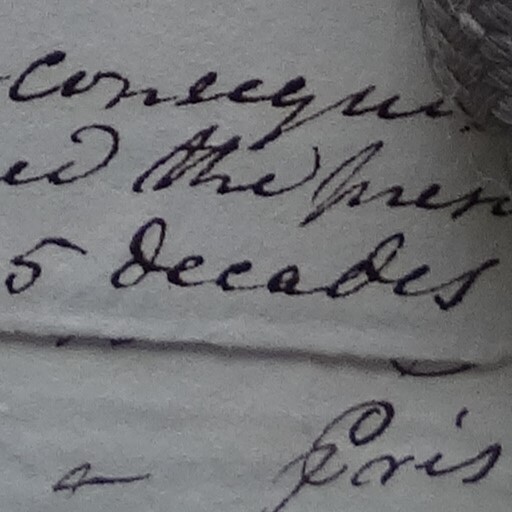 consequ
ed the pres
5 decades
Cris